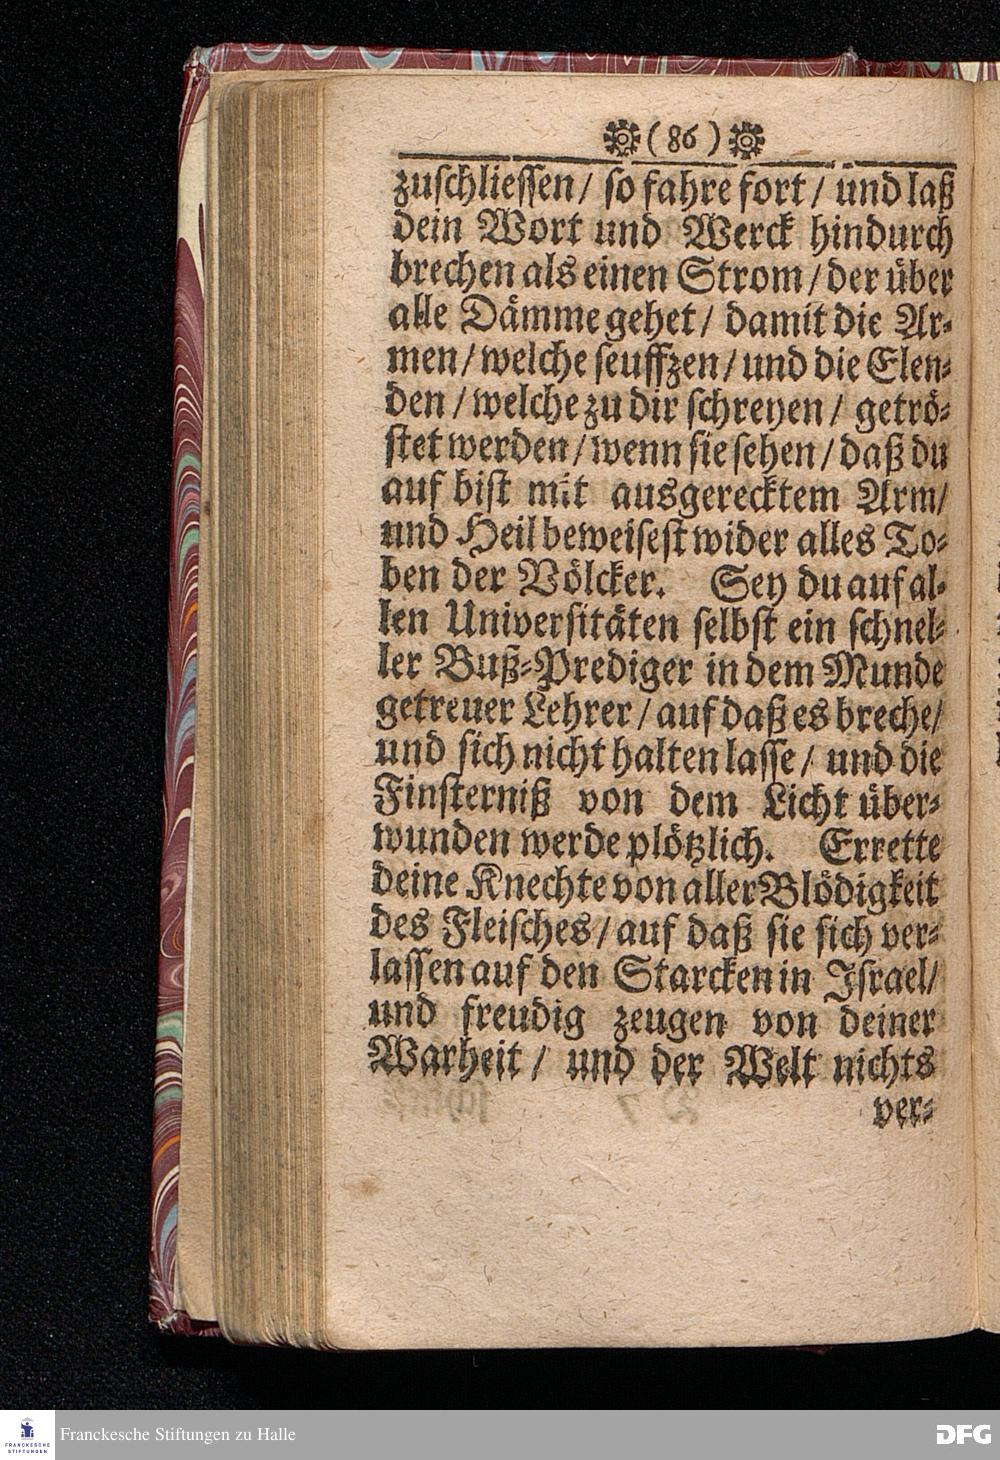 ( 86 )
zuschliessen/ so fahre fort/ und laß
dein Wort und Werck hindurch
brechen als einen Strom/ der über
alle Dämme gehet/ damit die Ar-
men/ welche seuffzen/ und die Elen-
den/ welche zu dir schreyen/ getrö-
stet werden/ wenn sie sehen/ daß du
auf bist mit ausgerecktem Arm/
und Heil beweisest wider alles To-
ben der Völcker. Sey du auf al-
len Universitäten selbst ein schnel-
ler Buß-Prediger in dem Munde
getreuer Lehrer/ auf daß es breche/
und sich nicht halten lasse/ und die
Finsterniß von dem Licht über-
wunden werde plötzlich. Errette
deine Knechte von aller Blödigkeit
des Fleisches/ auf daß sie sich ver-
lassen auf den Starcken in Israel/
und freudig zeugen von deiner
Warheit/ und der Welt nichts
ver-
FRANCKESCHE
STIFTUNGEN
Franckesche Stiftungen zu Halle
DFG